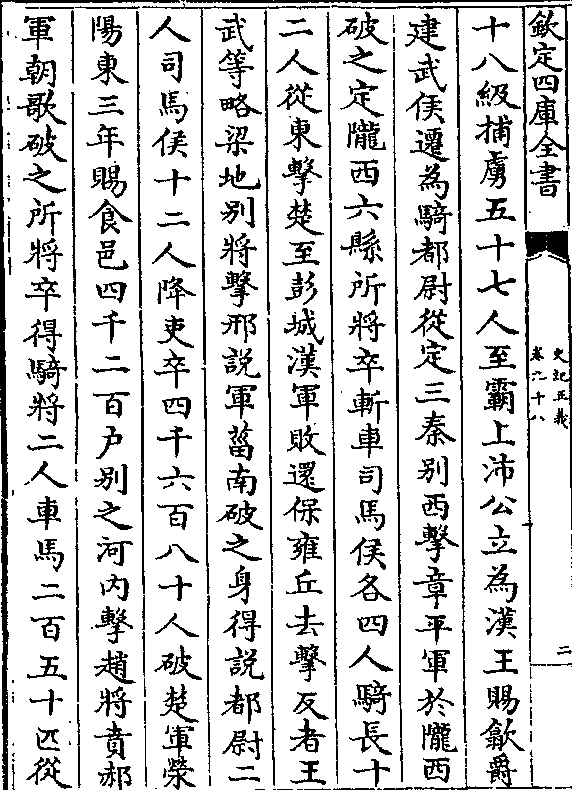 欽定四庫全書
史記正義
卷九十八
二
十八級捕虜五十七人至霸上沛公立為漢王賜歙爵
建武侯遷為騎都尉從定三秦別西擊章平軍於隴西
破之定隴西六縣所將卒斬車司馬侯各四人騎長十
二人從東擊楚至彭城漢軍敗還保雍丘去擊反者王
武等略梁地別將擊邢說軍菑南破之身得說都尉二
人司馬侯十二人降吏卒四千六百八十人破楚軍滎
陽東三年賜食邑四千二百户別之河内擊趙將賁郝
軍朝歌破之所將卒得騎將二人車馬二百五十匹從